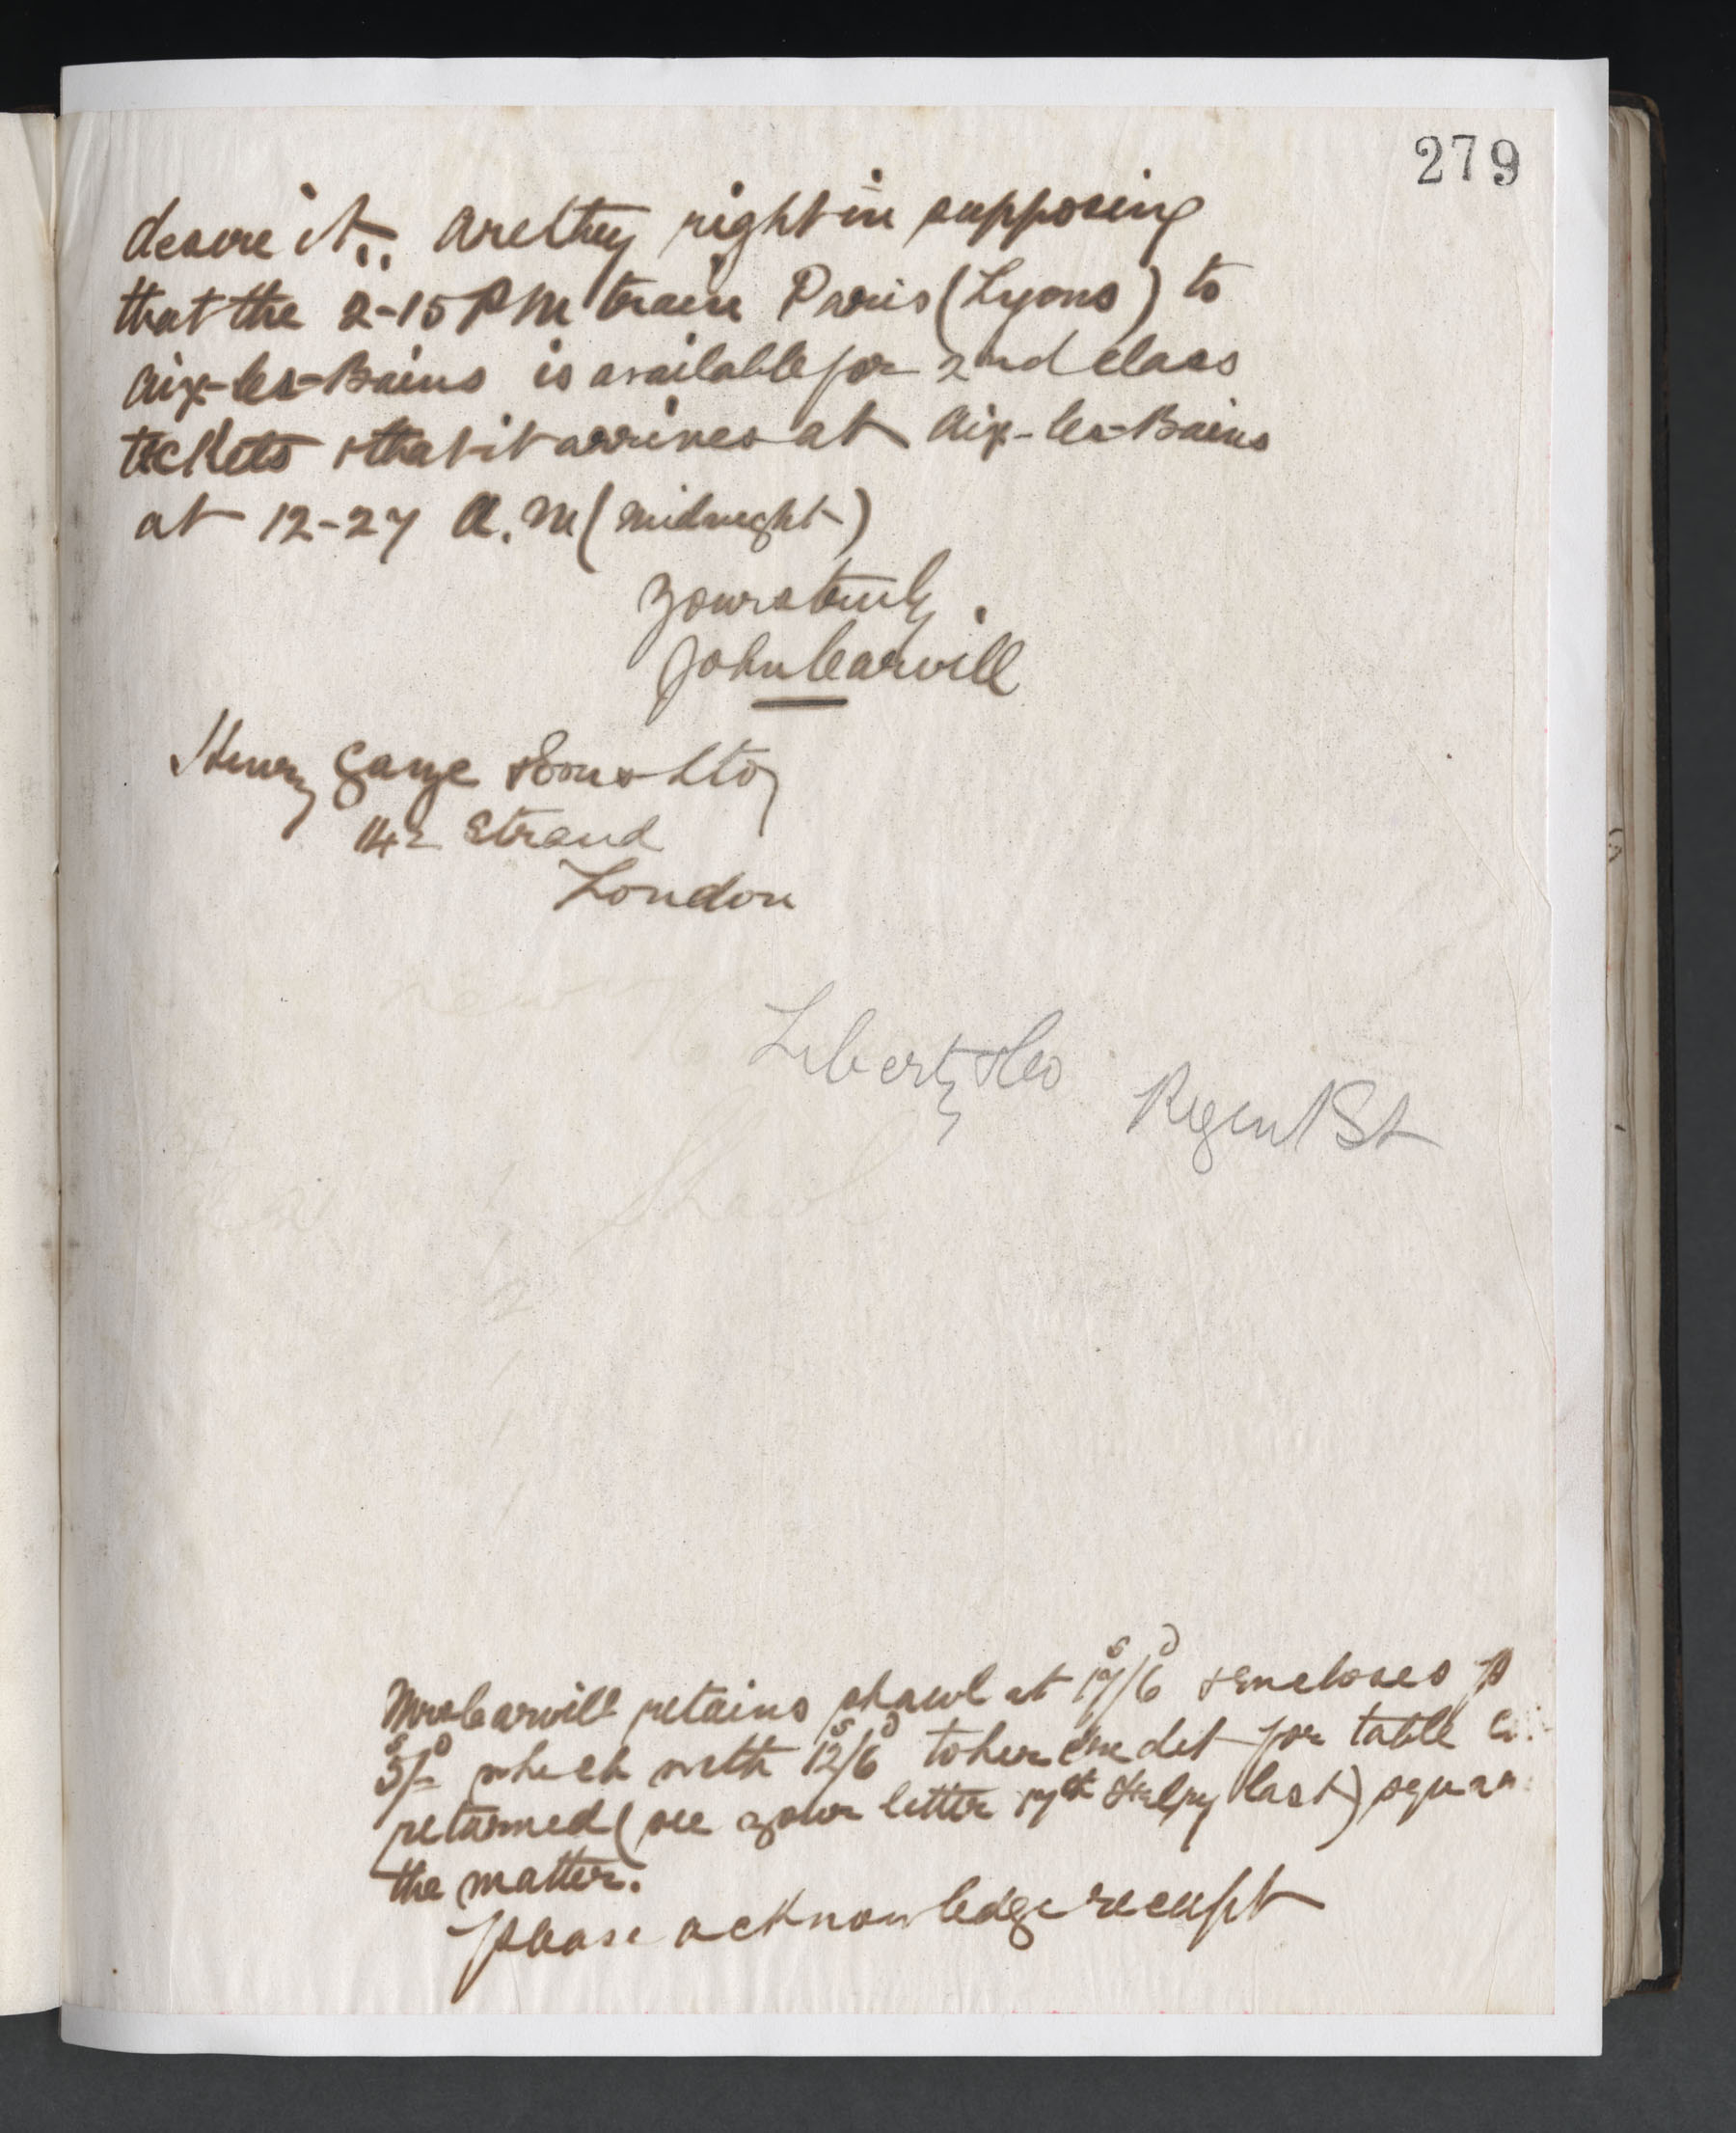 279
desire it. Are they right in supposing
that the 2-15 PM train Paris (Lyons) to
Aix-les-Bains is available for 2nd class
tickets & that it arrives at Aix-les-Bains
at 12-27 A.M (midnight)
Yours truly.
John Carvill
Henry Gaze & Sons Ltd
142 Strand
London
Liberty & Co
Regent St
Mrs Carvill retains shawl at 17/6 & encloses
5/- which with 12/6 to her credit for table
returned (see your letter 17th last)
the matter.
Please acknowledge receipt